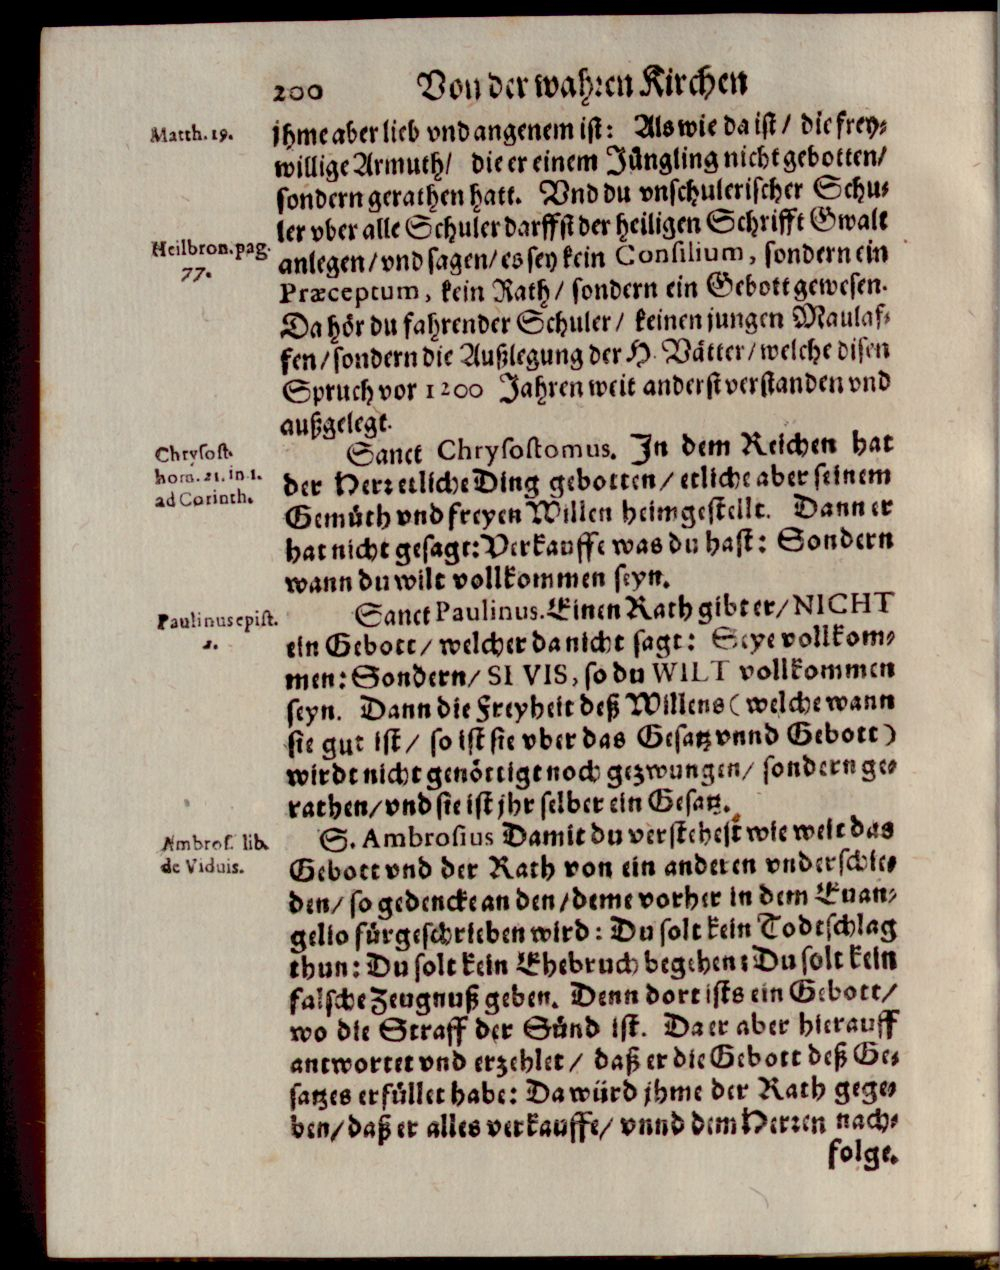 200 Von der wahren Kirchen
Matth. 19.
jhme aber lieb vnd angenem ist: Als wie da ist / die frey-
willige Armuth / die er einem Jüngling nicht gebotten /
sondern gerathen hatt. Vnd du vnschulerischer Schu-
ler vber alle Schuler darffst der heiligen Schrifft Gwalt
Heilbron. pag.
77.
anlegen / vnd sagen / es sey kein Consilium, sondern ein
Præceptum, kein Rath / sondern ein Gebott gewesen.
Da hör du fahrender Schuler / keinen jungen Maulaf-
fen / sondern die Außlegung der H. Vätter / welche disen
Spruch vor 1200 Jahren weit anderst verstanden vnd
außgelegt.
Chrysost.
hom. 21. in 1.
ad Corinth.
Sanct Chrysostomus. In dem Reichen hat
der Herr etliche Ding gebotten / etliche aber seinem
Gemüth vnd freyen Willen heimgestellt. Dann er
hat nicht gesagt: Verkauffe was du hast: Sondern
wann du wilt vollkommen seyn.
Paulinus epist.
1.
Sanct Paulinus. Einen Rath gibt er / NICHT
ein Gebott / welcher da nicht sagt: Seye vollkom-
men: Sondern / SI VIS, so du WILT vollkommen
seyn. Dann die Freyheit deß Willens ( welche wann
sie gut ist / so ist sie vber das Gesatz vnnd Gebott )
wirdt nicht genöttigt noch gezwungen / sondern ge-
rathen / vnd sie ist jhr selber ein Gesatz.
Ambros. lib.
de Viduis.
S. Ambrosius Damit du verstehest wie weit das
Gebott vnd der Rath von ein anderen vnderschie-
den / so gedencke an den / deme vorher in dem Euan-
gelio fürgeschrieben wird: Du solt kein Todtschlag
thun: Du solt kein Ehebruch begehen: Du solt kein
falsche Zeugnuß geben. Denn dort ists ein Gebott /
wo die Straff der Sünd ist. Da er aber hierauff
antwortet vnd erzehlet / daß er die Gebott deß Ge-
satzes erfüllet habe: Da würd jhme der Rath gege-
ben / daß er alles verkauffe / vnnd dem Herren nach-
folge.